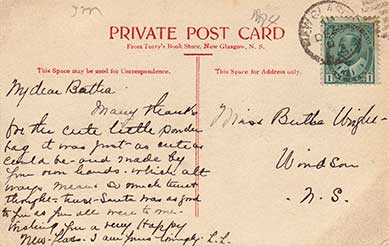 PRIVATE POST CARD
From Torry's Book Store, New Glasgow, N. S.
This Space may be used for Correspondence.
This Space for Address only.
My dear
Many thanks
for the cute little
bag it was just as cute as
could be and made by
own hands. which
ways means so much
thought Santa was as good
to you as you all were to me.
Wishing you a very Happy
New I am yours L.L.
Miss
Windsor
N. S.
NEW GLASGOW
1
1